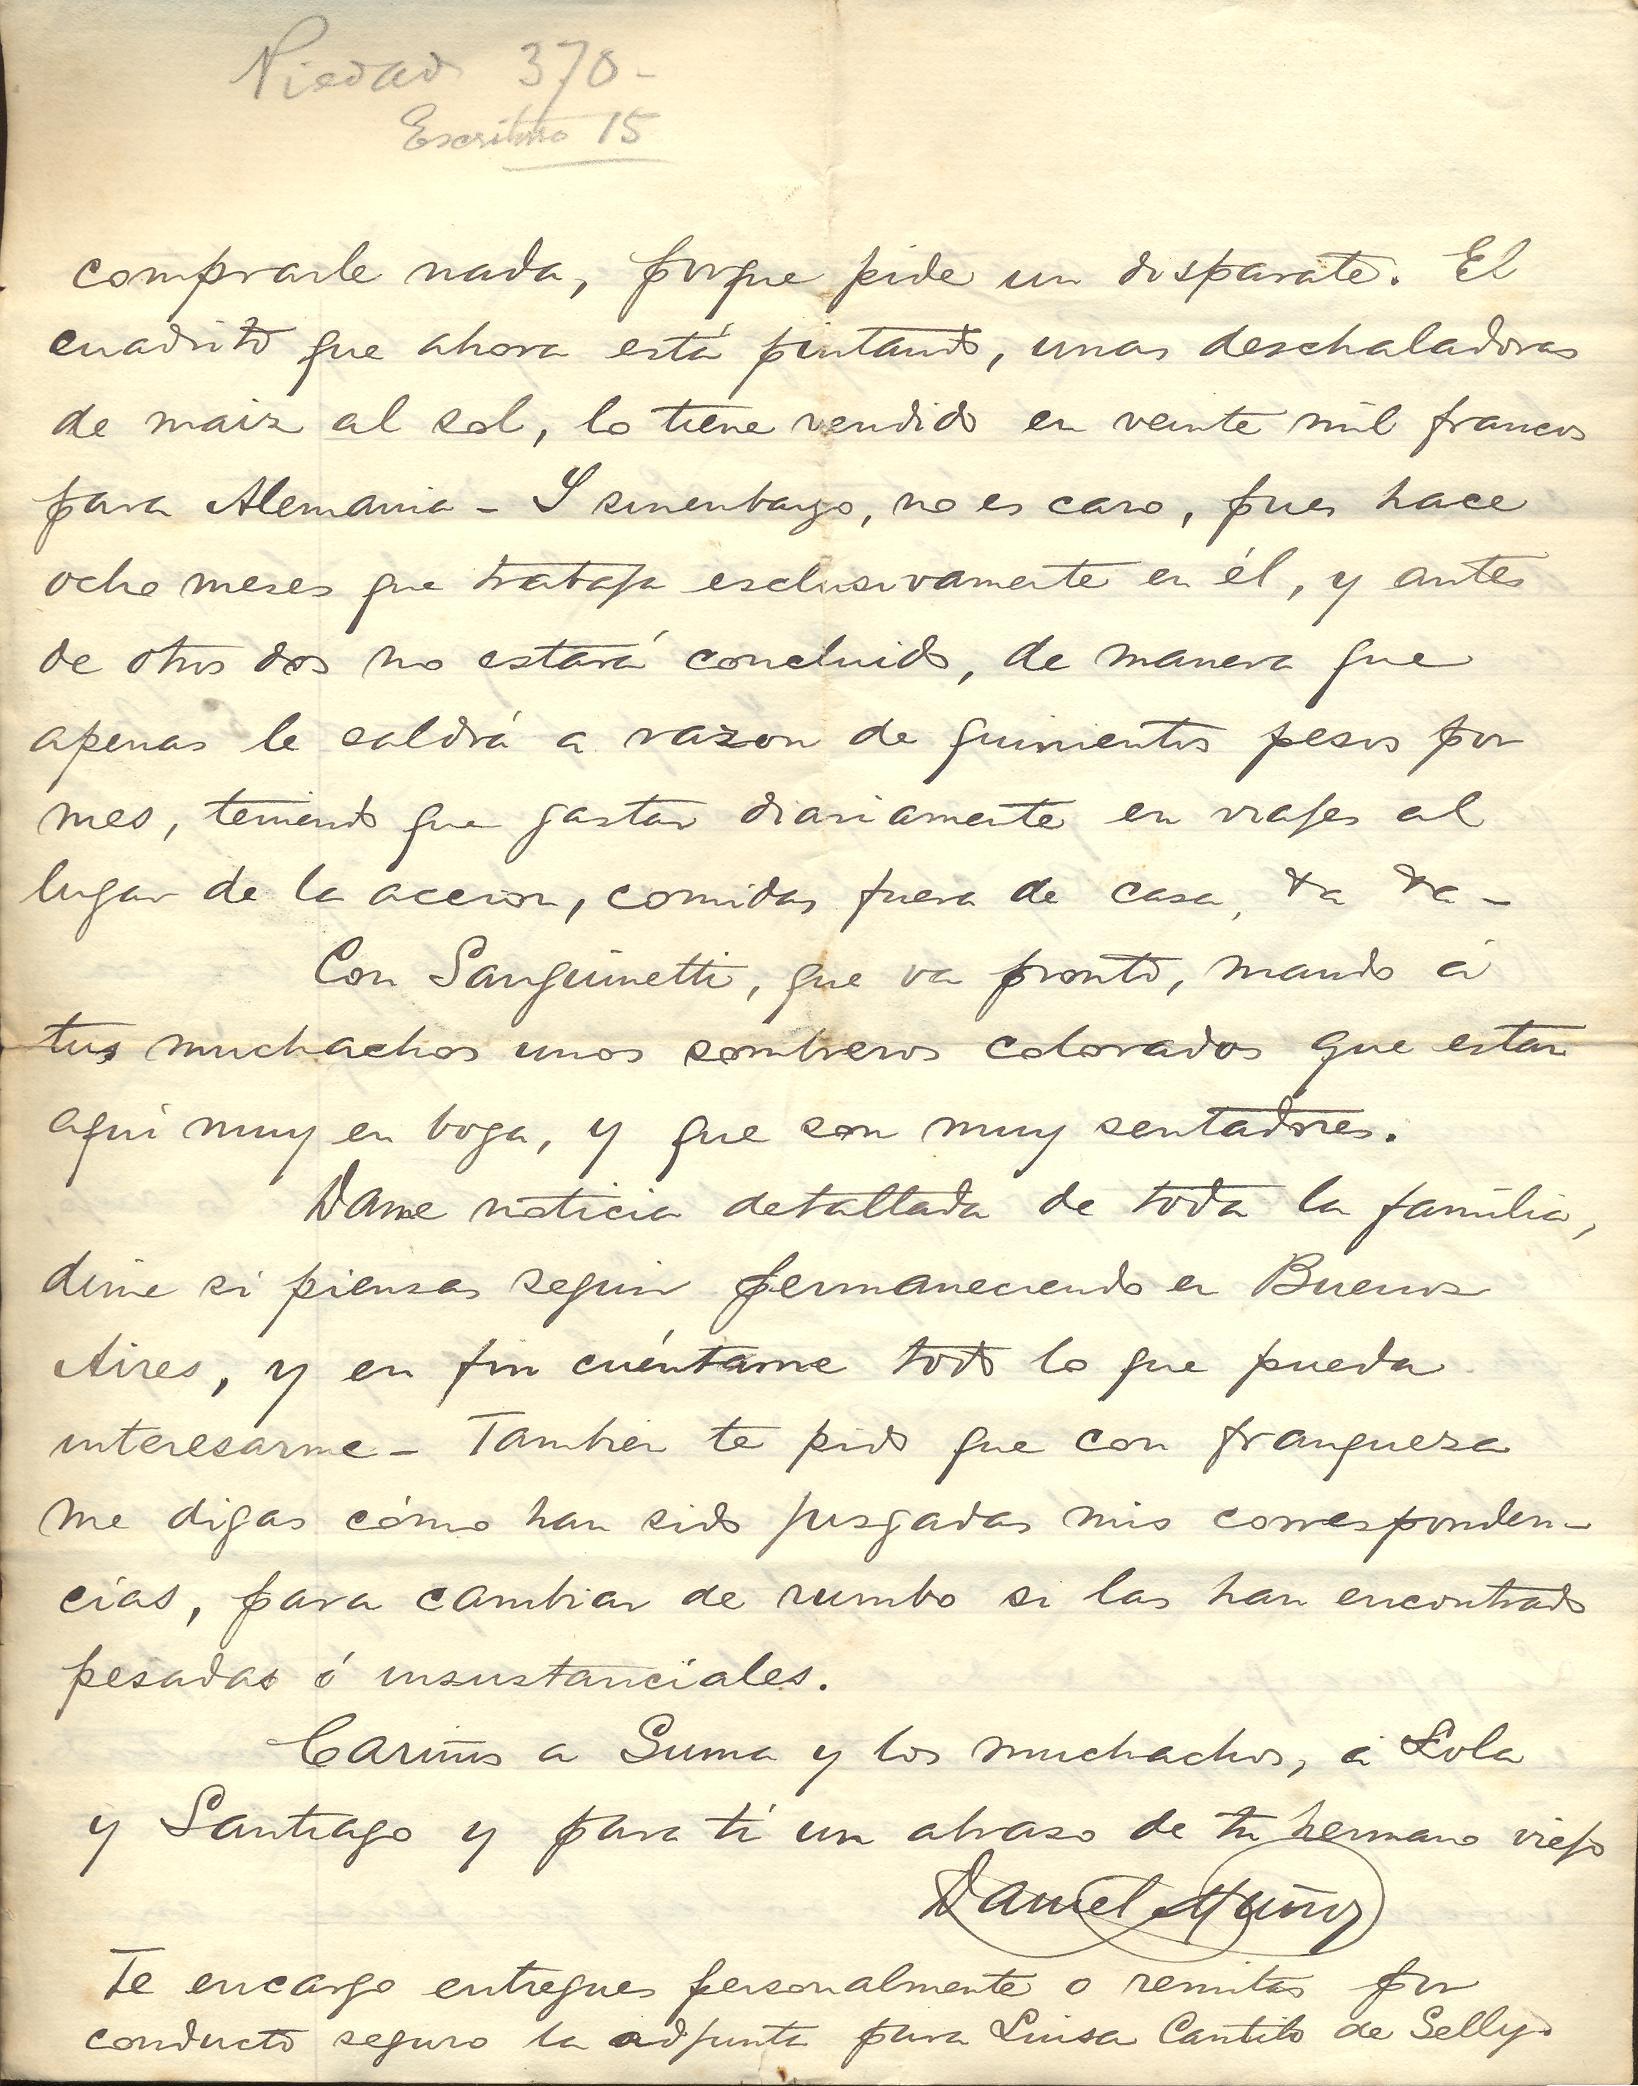 Piedad 370-
Escritorio 15
comprarle nada, porque pide un disparate. El
cuadrito que ahora está pintando, unas deschaladoras
de maiz al sol, lo tiene vendido en veinte mil francos
para Alemania - Y sinembargo, no es caro, pues hace
ocho meses que trabaja esclusivamente en él, y antes
de otros dos no estará concluido, de manera que
apenas le saldrá a razon de quinientos pesos por
mes, teniendo que gastar diariamente en viajes al
lugar de la accion, comidas fuera de casa, &a &a -
Con Sanguinetti, que va pronto, mando á
tus muchachos unos sombreros colorados que estan
aquí muy en boga, y que son muy sentadores.
Dame noticia detallada de toda la familia,
dime si piensas seguir permaneciendo en Buenos
Aires, y en fin cuéntame todo lo que pueda
interesarme - Tambien te pido que con franqueza
me digas cómo han sido jusgadas mis corresponden-
cias, para cambiar de rumbo si las han encontrado
pesadas ó insustanciales.
Cariños a Suma y los muchachos, á Lola
y Santiago y para tí un abraso de tu hermano viejo
Daniel Muñoz
Te encargo entregues personalmente o remitas por
conducto seguro la adjunta para Luisa Cantilo de Selly.